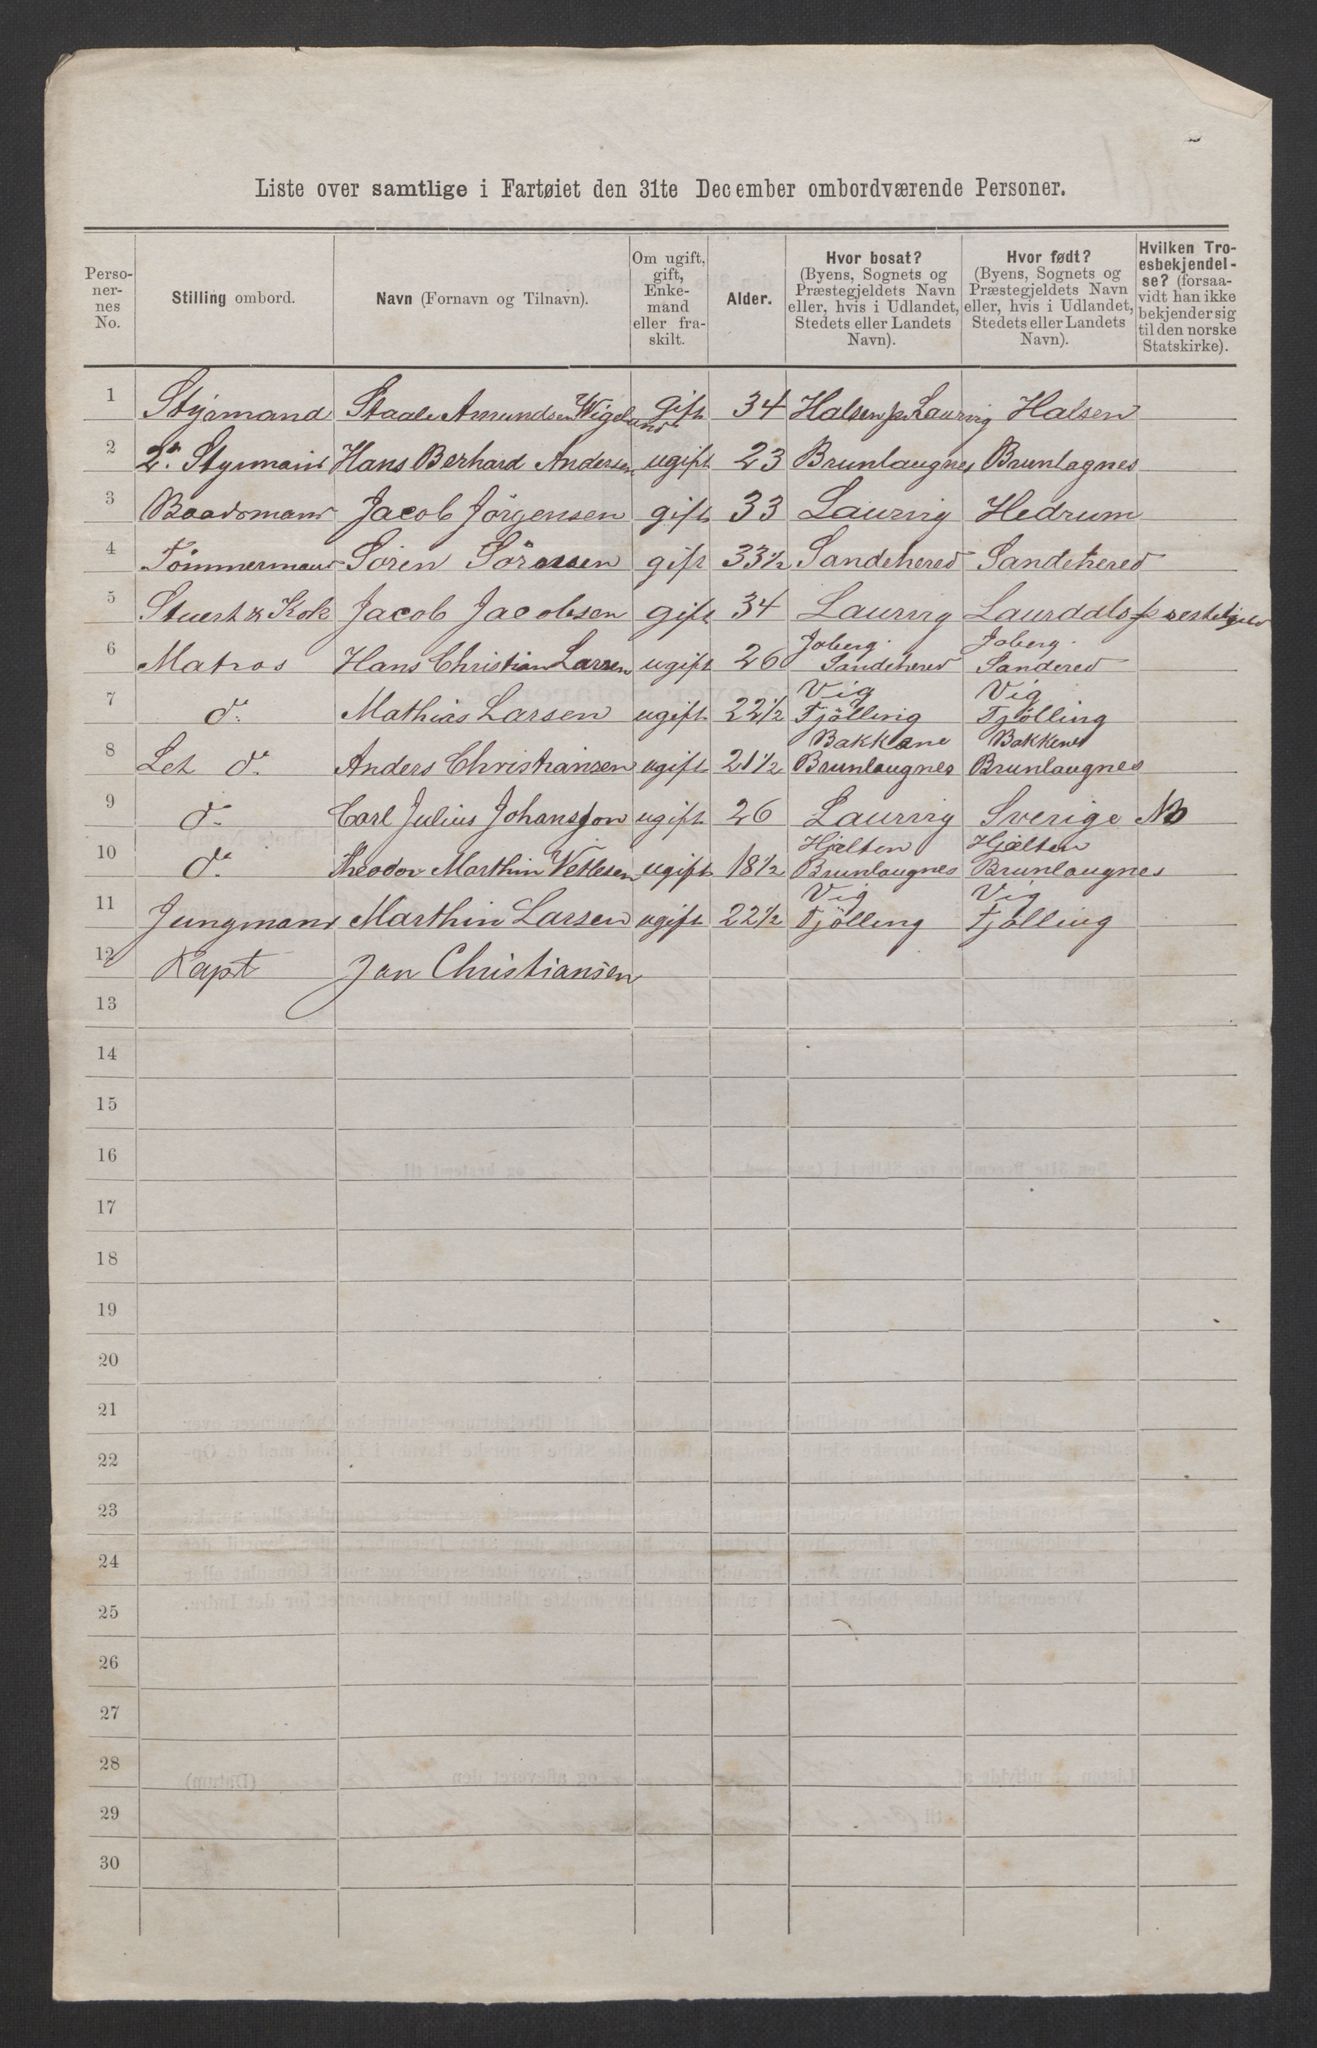 Liste over samtlige i Fartøiet den 31te December ombordværende Personer.
Perso-
ner-
nes
No.
Stilling ombord.
Navn (Fornavn og Tilnavn).
Om ugift,
gift,
Enke-
mand
eller fra-
skilt.
Alder.
Hvor bosat?
(Byens, Sognets og
Præstegjeldets Navn
eller, hvis i Udlandet,
Stedets eller Landets
Navn).
Hvor født?
(Byens, Sognets og
Præstegjeldets Navn
eller, hvis i Udlandet,
Stedets eller Landets
Navn).
Hvilken Tro-
esbekjendel-
se? (forsaa-
vidt han ikke
bekjender sig
til den norske
Statskirke).
1 Styrmand Staale Amundsen Wigelund gift 34 Halsen pr. Laurvig Halsen
2 2n Styrmand Hans Berhard Andersen ugift 23 Brunlaugnes Brunlagnes
3 Baadsmand Jacob Jörgensen gift 33 Laurvig Hedrum
4 Tömmermand Sören Sörensen gift 33½ Sandehered Sandehered
5 Stuert & Kok Jacob Jacobsen gift 34 Laurvig Laurdals præstegjeld
6 Matros Hans Christian Larsen ugift 26 Joberg Sandehered Joberg Sandered
7 do Mathias Larsen ugift 22½ Vig Tjölling Vig Tjölling
8 Let do Anders Christiansen ugift 21½ Bakkane Brunlaugnes Bakkene Brunlaugnes
9 do Carl Julius Johansson ugift 26 Laurvig Sverige NB
10 do Theodor Marthin Vetlesen ugift 18½ Hjelten Brunlaugnes Hjelten Brunlaugnes
11 Jungmand Marthin Larsen ugift 22½ Vig Tjölling Vig Tjölling
12 Kapt Jan Christiansen
13
14
15
16
17
18
19
20
21
22
23
24
25
26
27
28
29
30